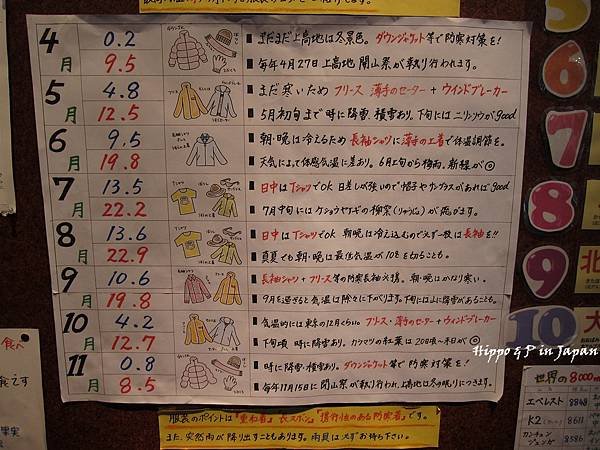 4月
0.2
9.5
まだまだ上高地は冬景色。ダウンジャケット等で防寒対策を!
毎年4月27日上高地開山祭が執り行われます。
5月
4.8
12.5
まだ寒いため フリース 薄手のセーター + ウインドブレーカー
5月初旬まで時に降雪、積雪あり。下旬にはニリンソウがgood
6月
9.5
19.8
朝・晩は冷えるため 長袖シャツに薄手の上着で体温調節を。
天気によって体感気温に差あり。6月上旬から梅雨。新緑が◎
7月
13.5
22.2
Tシャツ
日中はTシャツでOK 日差しが強いので帽子やサングラスがあればgood
7月中旬にはケショウヤナギの柳絮(りゅうじょ)が飛びます。
8月
13.6
22.9
Tシャツ
日中はTシャツでOK 朝晩は冷え込むので必ず一枚は長袖を!!
真夏でも朝・晩は最低気温が10℃を切ることも。
9月
10.6
19.8
長袖シャツ + フリース等の防寒長袖必携。朝・晩はかなり寒い。
9月を過ぎると気温は徐々に下がります。下旬には降雪があることも。
10月
4.2
12.7
気温的には東京の12月くらい。フリース・薄手のセーター + ウインドブレーカー
下旬頃 時に降雪あり。カラマツの紅葉は20日頃〜末日が◎
11月
0.8
8.5
時に降雪・積雪あり。ダウンジャケット等で防寒対策を!
毎年11月15日に閉山祭が執り行われ、上高地は冬の眠りにつきます。
服装のポイントは「重ね着」長ズボン」「携行性のある防寒着」です。
また、突然雨が降り出すこともあります。雨具は必ずお持ち下さい。
5
6
7
8
9
10
北
大
Hippo & P in Japan
世界の8000m
エベレスト 8848
K2 8611
カンチェンジュンガ 8586
食べ
果実